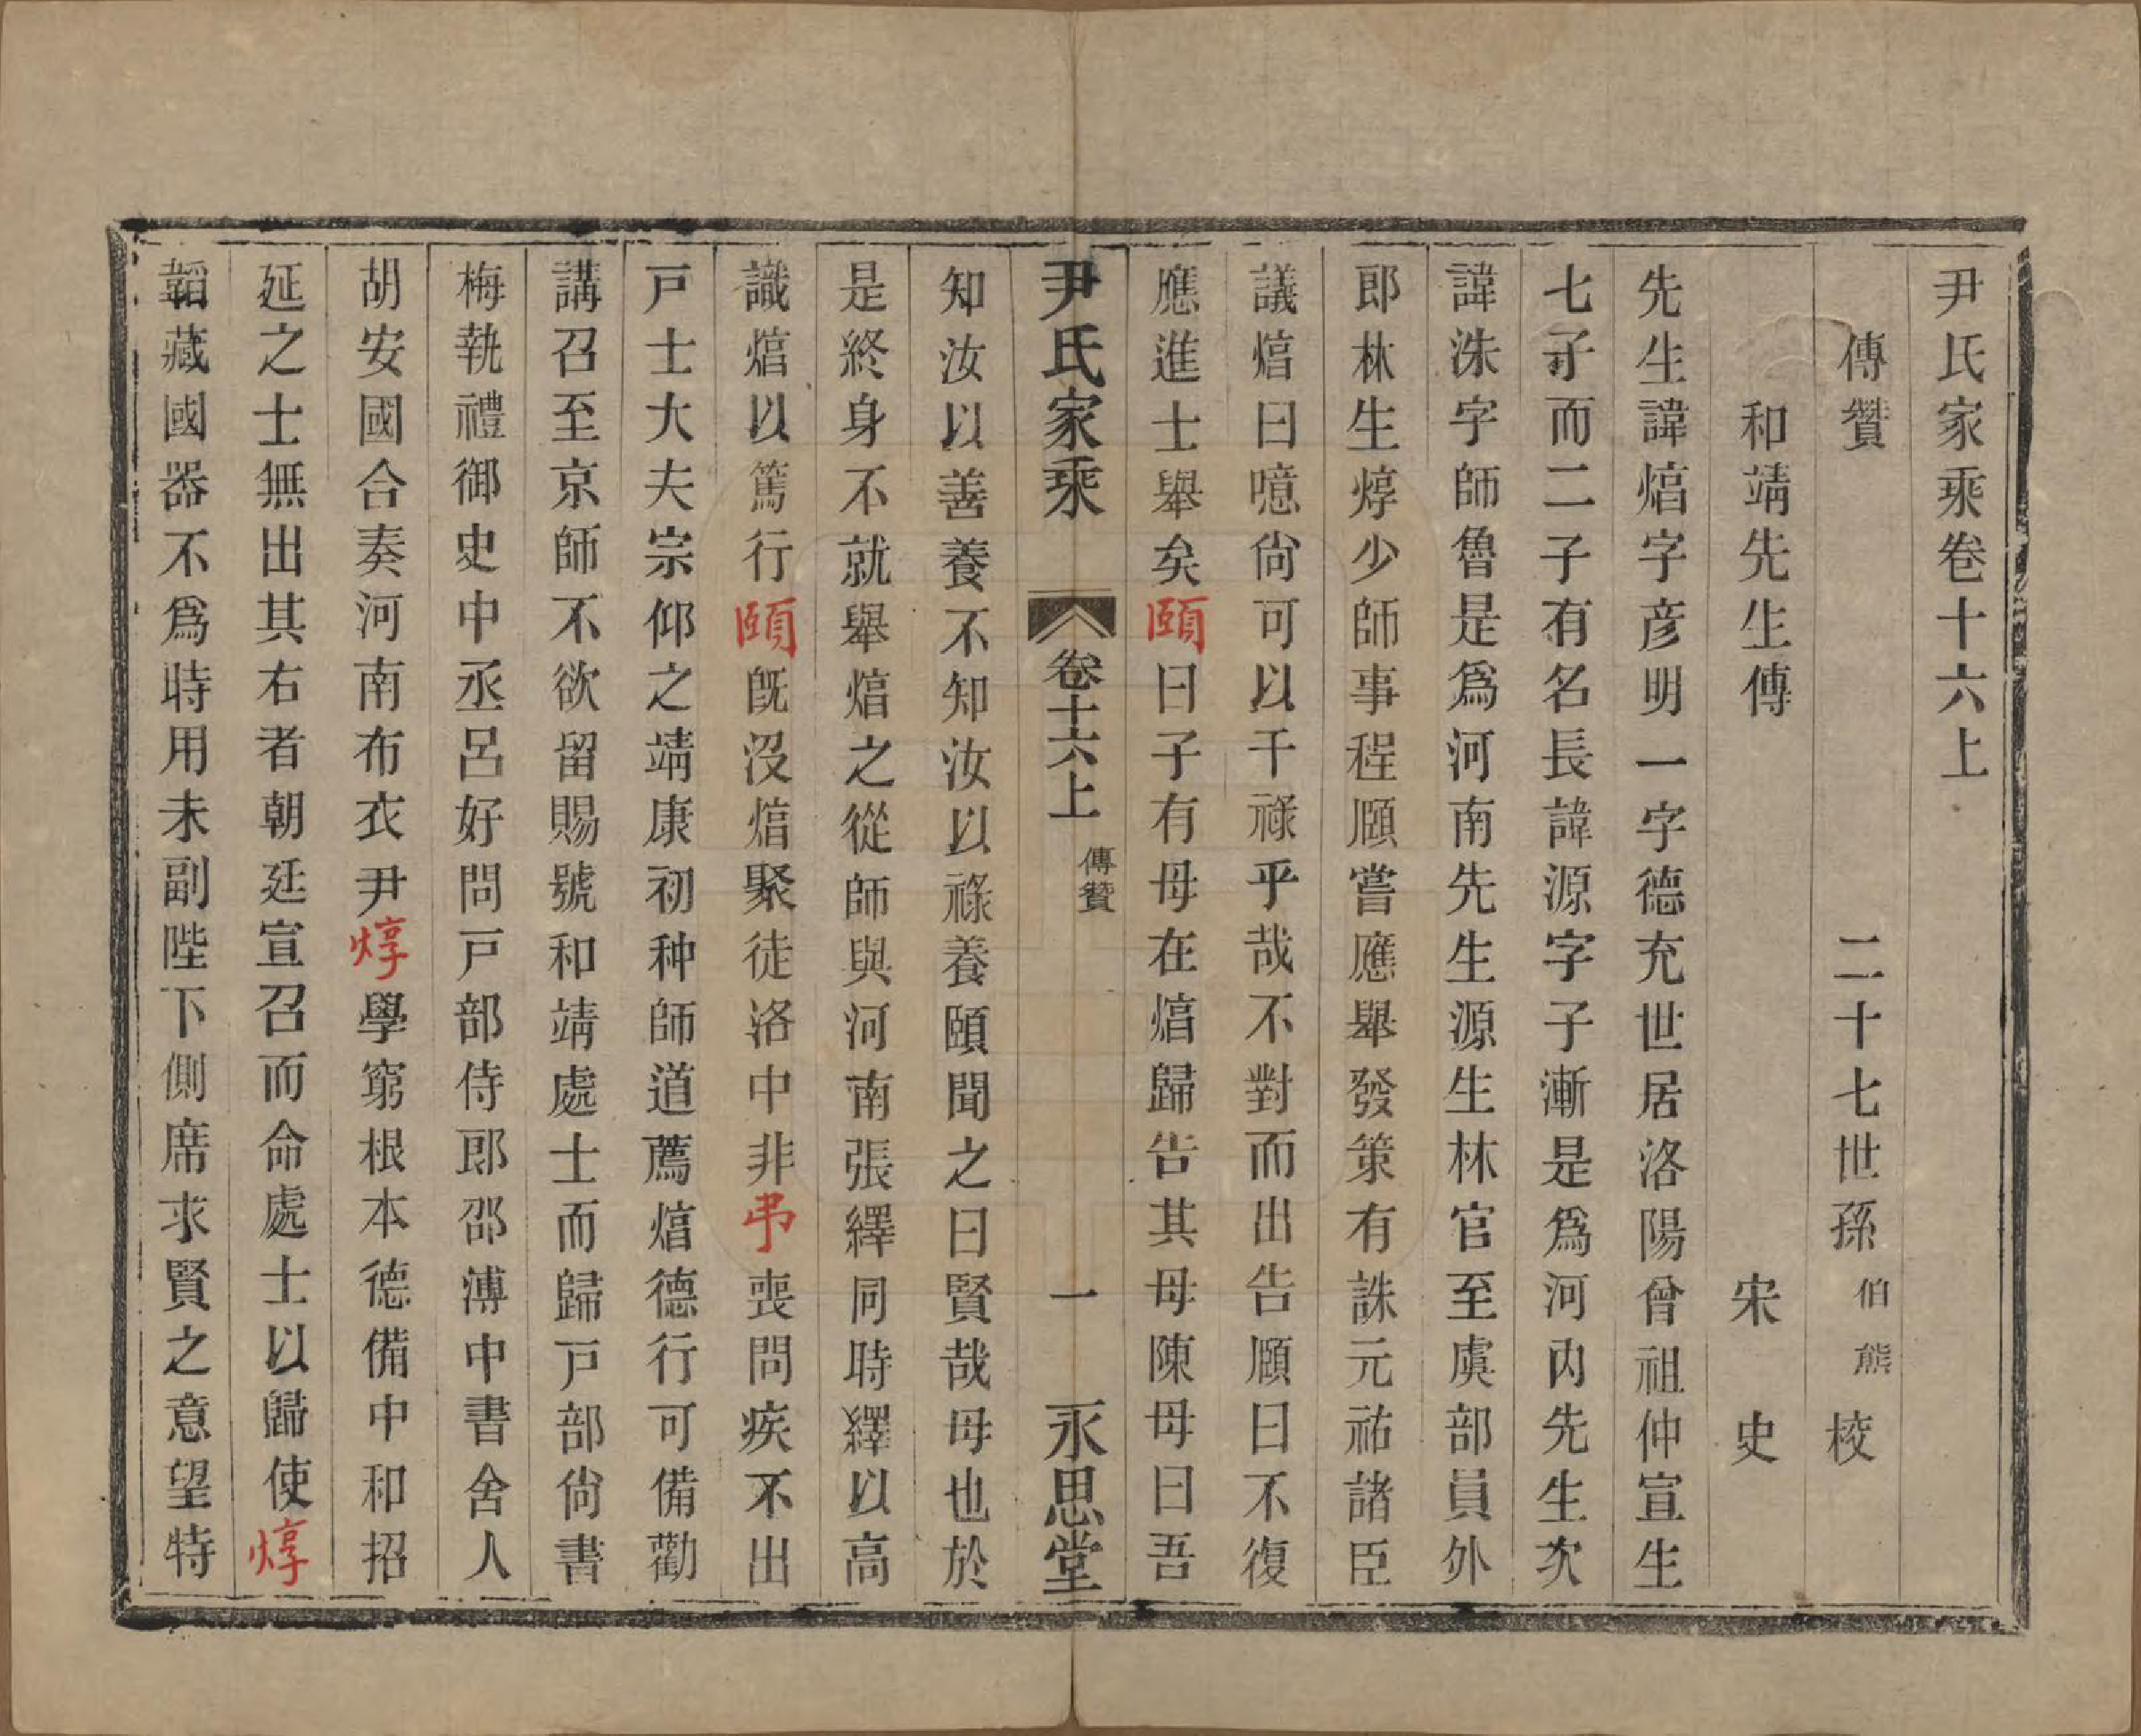 尹氏家乘卷十六上
傳贊 二十七世孫 伯熊 校
和靖先生傳 宋史
先生諱焞字彦明一字德充世居洛陽曾祖仲宣生
七子而二子有名長諱源字子漸是爲河内先生次
諱洙字師魯是爲河南先生源生林官至虞部員外
郎林生焞少師事程頤嘗應舉發策有誅元祐諸臣
議焞曰噫尙可以干祿乎哉不對而出告頤曰不復
應進士舉矣頤曰子有母在焞歸告其母陳母曰吾
尹氏家乘 卷十六上 傳贊 一 永思堂
知汝以善養不知汝以祿養頤聞之曰賢哉母也於
是終身不就舉焞之從師與河南張繹同時繹以高
識焞以篤行頤旣沒焞聚徒洛中非弔喪問疾不出
戸士大夫宗仰之靖康初种師道薦焞德行可備勸
講召至京師不欲留賜號和靖處士而歸戸部尙書
梅執禮御史中丞呂好問戸部侍郎邵溥中書舍人
胡安國合奏河南布衣尹焞學窮根本德備中和招
延之士無出其右者朝廷宣召而命處士以歸使焞
韜藏國器不爲時用未副陛下側席求賢之意望特